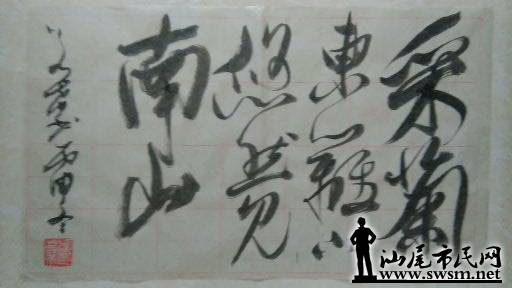 采菊
東籬下
悠然見
南山
丙申冬
汕尾市民网
www.swsm.net